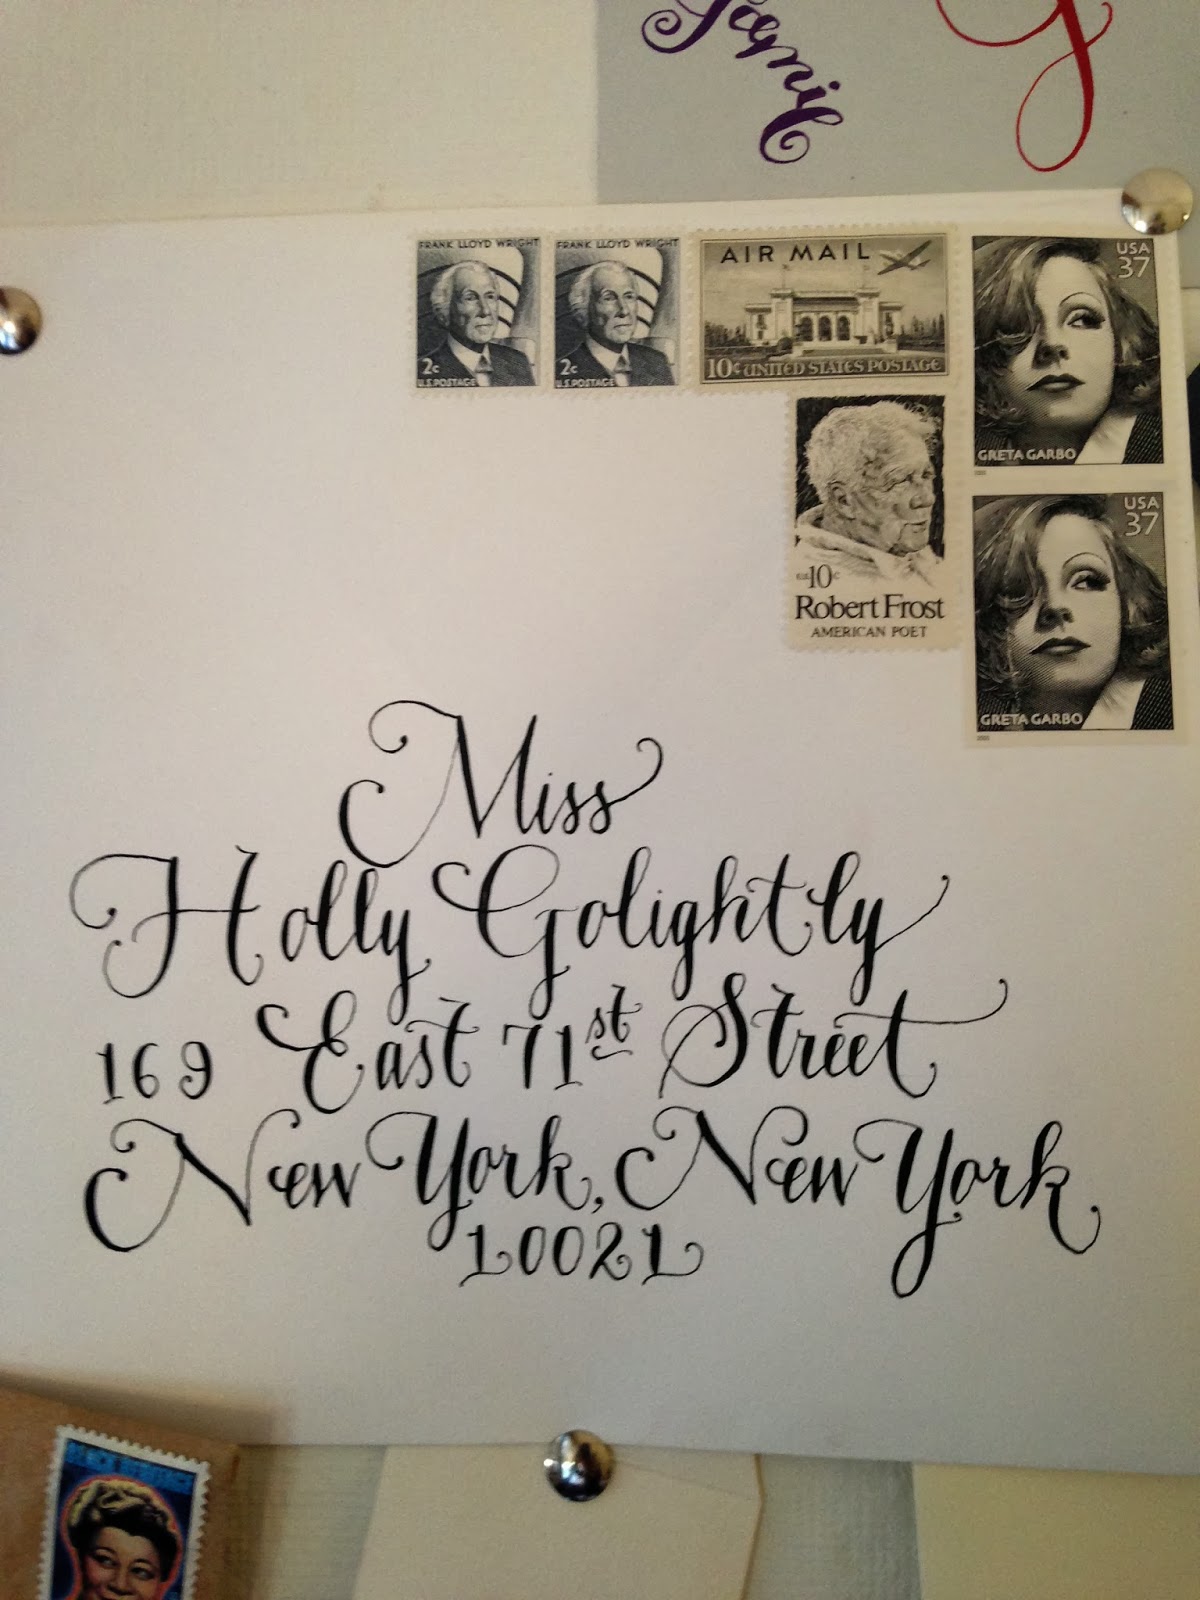 FRANK LLOYD WRIGHT
2c
U.S. POSTAGE
FRANK LLOYD WRIGHT
2c
U.S. POSTAGE
AIR MAIL
10¢ UNITED STATES POSTAGE
USA
37
GRETA GARBO
10c
Robert Frost
AMERICAN POET
USA
37
GRETA GARBO
Miss
Holly Golightly
169 East 71st Street
New York, New York
10021